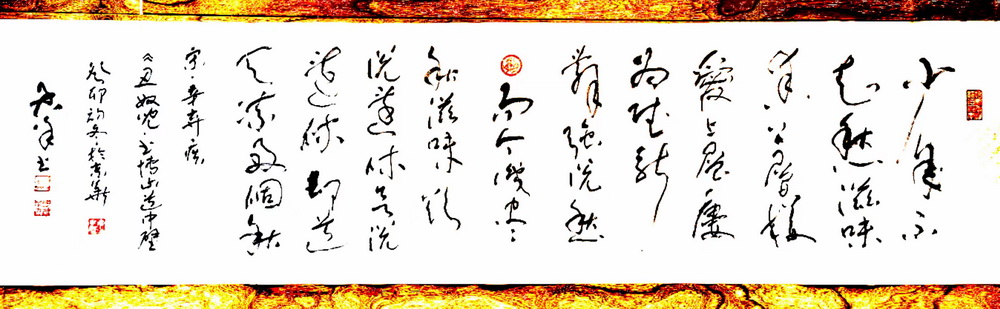 少年不
识愁滋味
爱上层楼
爱上层楼
为赋新
辞强说愁
而今识尽
愁滋味欲
说还休欲说
还休却道
天凉好個秋
宋·辛弃疾
《丑奴儿·书博山道中壁
癸卯初冬於京華
书